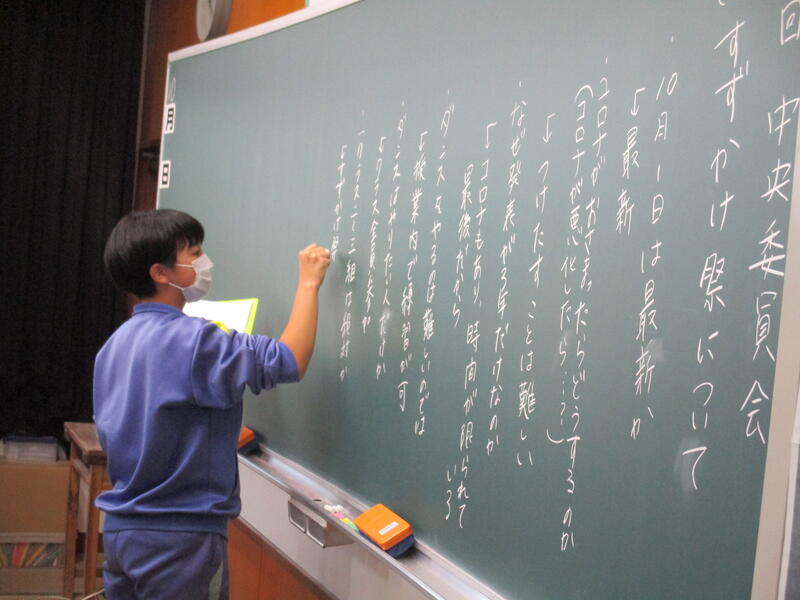 回 中央委員会
すずかけ祭について
・10月1日は最新か
↓最新
・コロナがおさまったらどうするのか
(コロナが悪化したら…?)
↓つけたすことは難しい
・なぜ発表が3年だけなのか
↓コロナもあり、時間が限られている
最後だから
・ダンスをやるのは難しいのでは
↓授業内で練習が可
・ダンスはやりたい人だけか
↓クラス全員
・一クラスで三組は
↓すずかけ
10
月
日